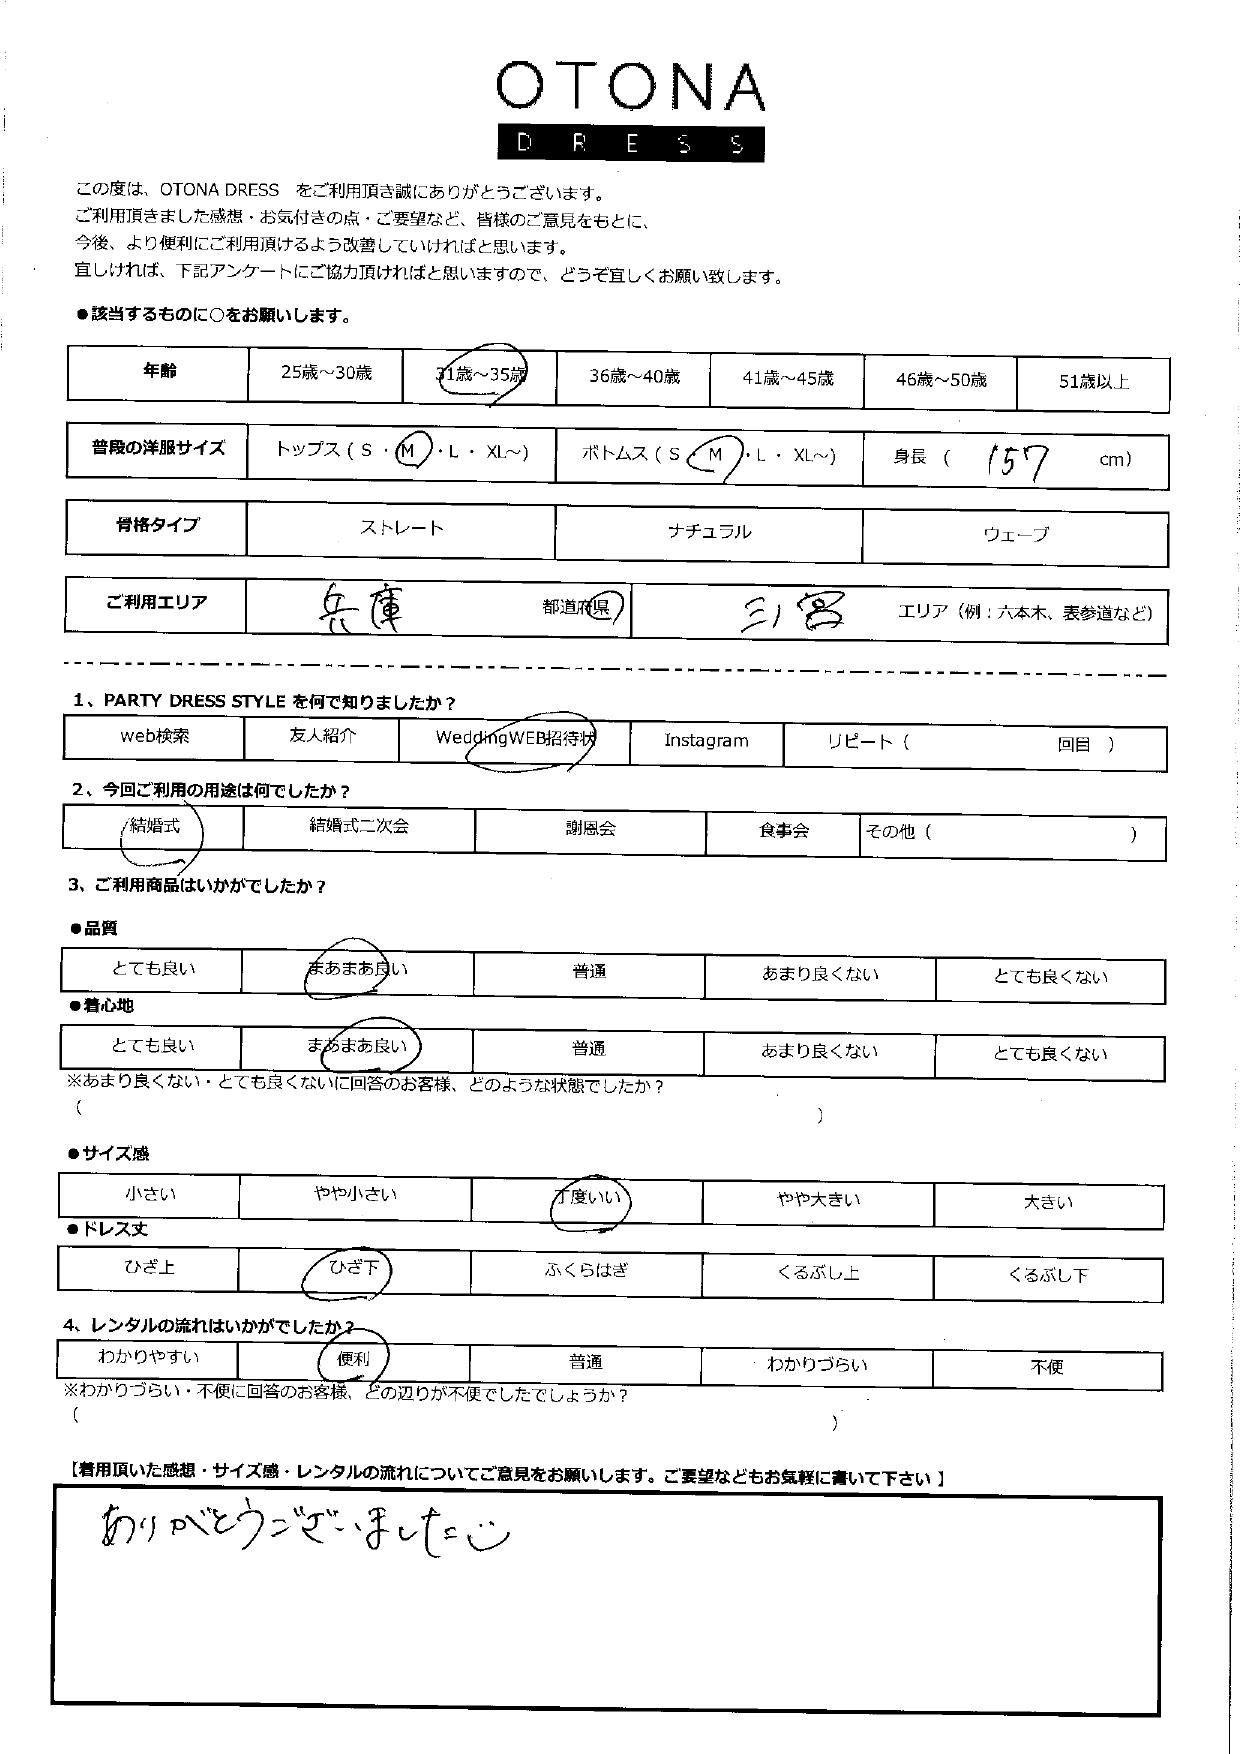 OTONA
DRESS
この度は、OTONA DRESS　をご利用頂き誠にありがとうございます。
ご利用頂きました感想・お気付きの点・ご要望など、皆様のご意見をもとに、
今後、より便利にご利用頂けるよう改善していければと思います。
宜しければ、下記アンケートにご協力頂ければと思いますので、どうぞ宜しくお願い致します。
●該当するものに〇をお願いします。
年齢 25歳～30歳 31歳～35歳 36歳～40歳 41歳～45歳 46歳～50歳 51歳以上
普段の洋服サイズ トップス（ S ・ M ・ L ・ XL～） ボトムス（ S ・ M ・ L ・ XL～） 身長 （ 157 cm）
骨格タイプ ストレート ナチュラル ウェーブ
ご利用エリア 兵庫 都道府県 三宮 エリア（例：六本木、表参道など）
1、PARTY DRESS STYLE を何で知りましたか？
web検索 友人紹介 WeddingWEB招待状 Instagram リピート（ 回目 ）
2、今回ご利用の用途は何でしたか？
結婚式 結婚式二次会 謝恩会 食事会 その他（ ）
3、ご利用商品はいかがでしたか？
●品質
とても良い まあまあ良い 普通 あまり良くない とても良くない
●着心地
とても良い まあまあ良い 普通 あまり良くない とても良くない
※あまり良くない・とても良くないに回答のお客様、どのような状態でしたか？
（ ）
●サイズ感
小さい やや小さい 丁度いい やや大きい 大きい
●ドレス丈
ひざ上 ひざ下 ふくらはぎ くるぶし上 くるぶし下
4、レンタルの流れはいかがでしたか？
わかりやすい 便利 普通 わかりづらい 不便
※わかりづらい・不便に回答のお客様、どの辺りが不便でしたでしょうか？
（ ）
【着用頂いた感想・サイズ感・レンタルの流れについてご意見をお願いします。ご要望などもお気軽に書いて下さい 】
ありがとうございました